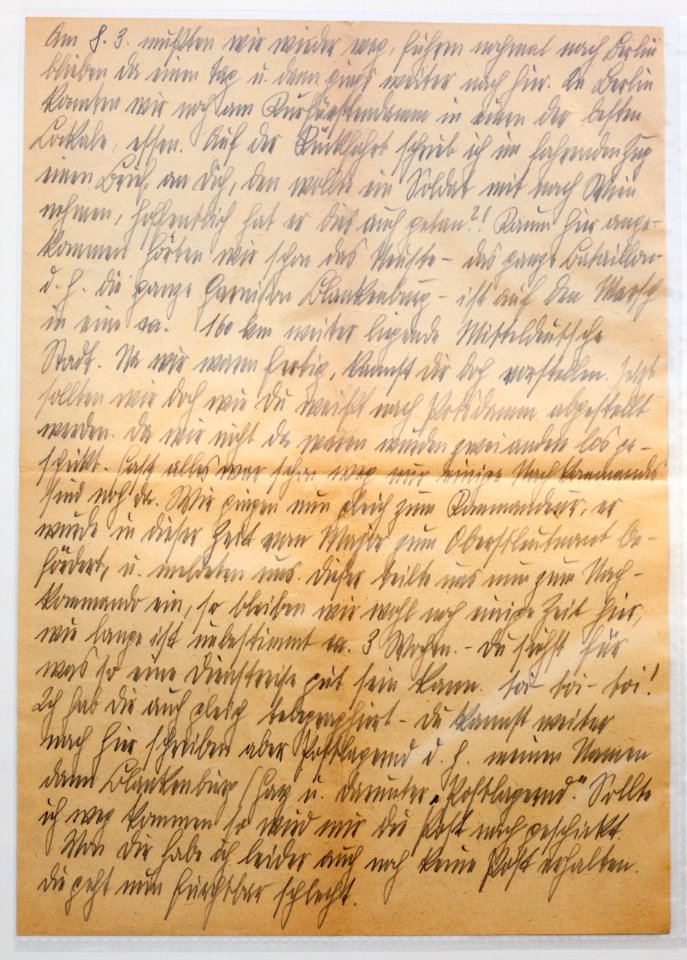 Am 8. 3. mußten wir wieder weg, fuhren nochmal nach Berlin
blieben da einen Tag u. dann gings weiter nach hier. In Berlin
konnten wir noch am Kurfürstendamm in einen der besten
Lockale, essen. Auf der Rückfahrt schrieb ich im fahrenden Zug
einen Brief an Dich, den wollte ein Soldat mit nach Wien
nehmen, hoffentlich hat er dies auch getan?! Kaum hier ange-
kommen hörten wir schon das Neuste - das ganze Bataillon
d. h. die ganze Garnison Blankenburg - ist auf den Marsch
in eine ca. 160 km weiter ligende Mitteldeutsche
Stadt. Na wir waren fertig, kannst dir doch vorstellen. Jetzt
sollten wir doch wie Du weißt nach Potsdamm abgestellt
werden. Da wir nicht da waren wurden zwei andere los ge-
schickt. Fast alles war schon weg nur einige Nachkommandos
sind noch da. Wir gingen nun gleich zum Kommandeur, er
wurde in dieser Zeit vom Major zum Oberstleutnant be-
fördert, u. meldeten uns. Dieser teilte uns nun zum Nach-
kommando ein, so bleiben wir wohl noch einige Zeit hier,
wie lange ist unbestimmt ca. 3 Wochen. - Du siehst für
was so eine Dienstreise gut sein kann. toi - toi - toi!
Ich hab dir auch gleich telegraphiert - du kannst weiter
nach hier schreiben aber Postlagernd d. h. meinen Namen
dann Blankenburg / Harz u. darunter „Postlagernd." Sollte
ich weg kommen so wird mir die Post nach geschickt.
Von Dir habe ich leider auch noch keine Post erhalten.
die geht nun furchtbar schlecht.